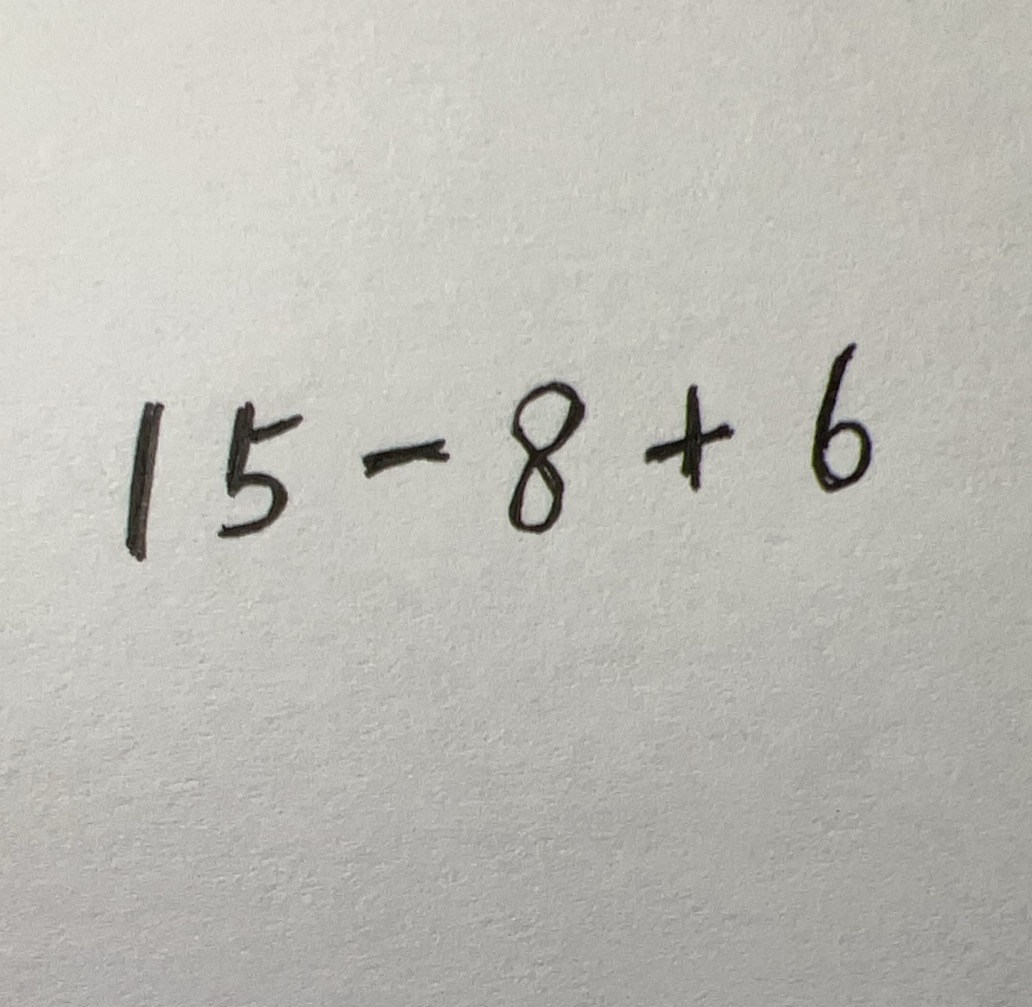 15 - 8 + 6